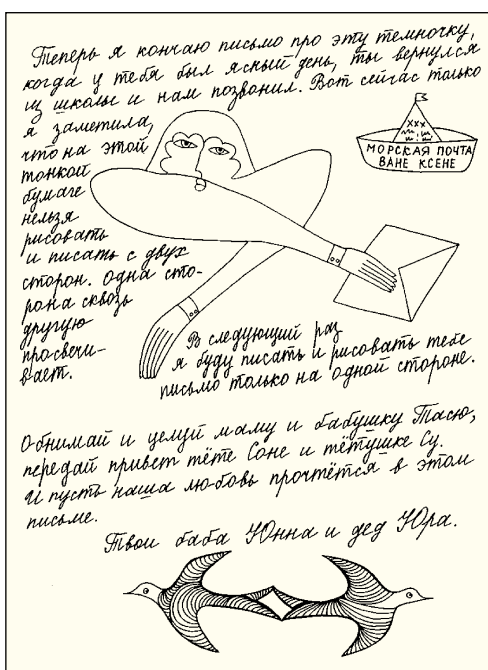 Теперь я кончаю письмо про эту темночку,
когда у тебя был ясный день, ты вернулся
из школы и нам позвонил. Вот сейчас только
я заметила,
что на этой
тонкой
бумаге
нельзя
рисовать
и писать с двух
сторон. Одна сто-
рона сквозь
другую
просвечи-
вает.
ххх
МОРСКАЯ ПОЧТА
ВАНЕ КСЕНЕ
В следующий раз
я буду писать и рисовать тебе
письмо только на одной стороне.
Обнимай и целуй маму и бабушку Тасю,
передай привет тёте Соне и тётушке Су.
И пусть наша любовь прочтётся в этом
письме.
Твои баба Юнна и дед Юра.